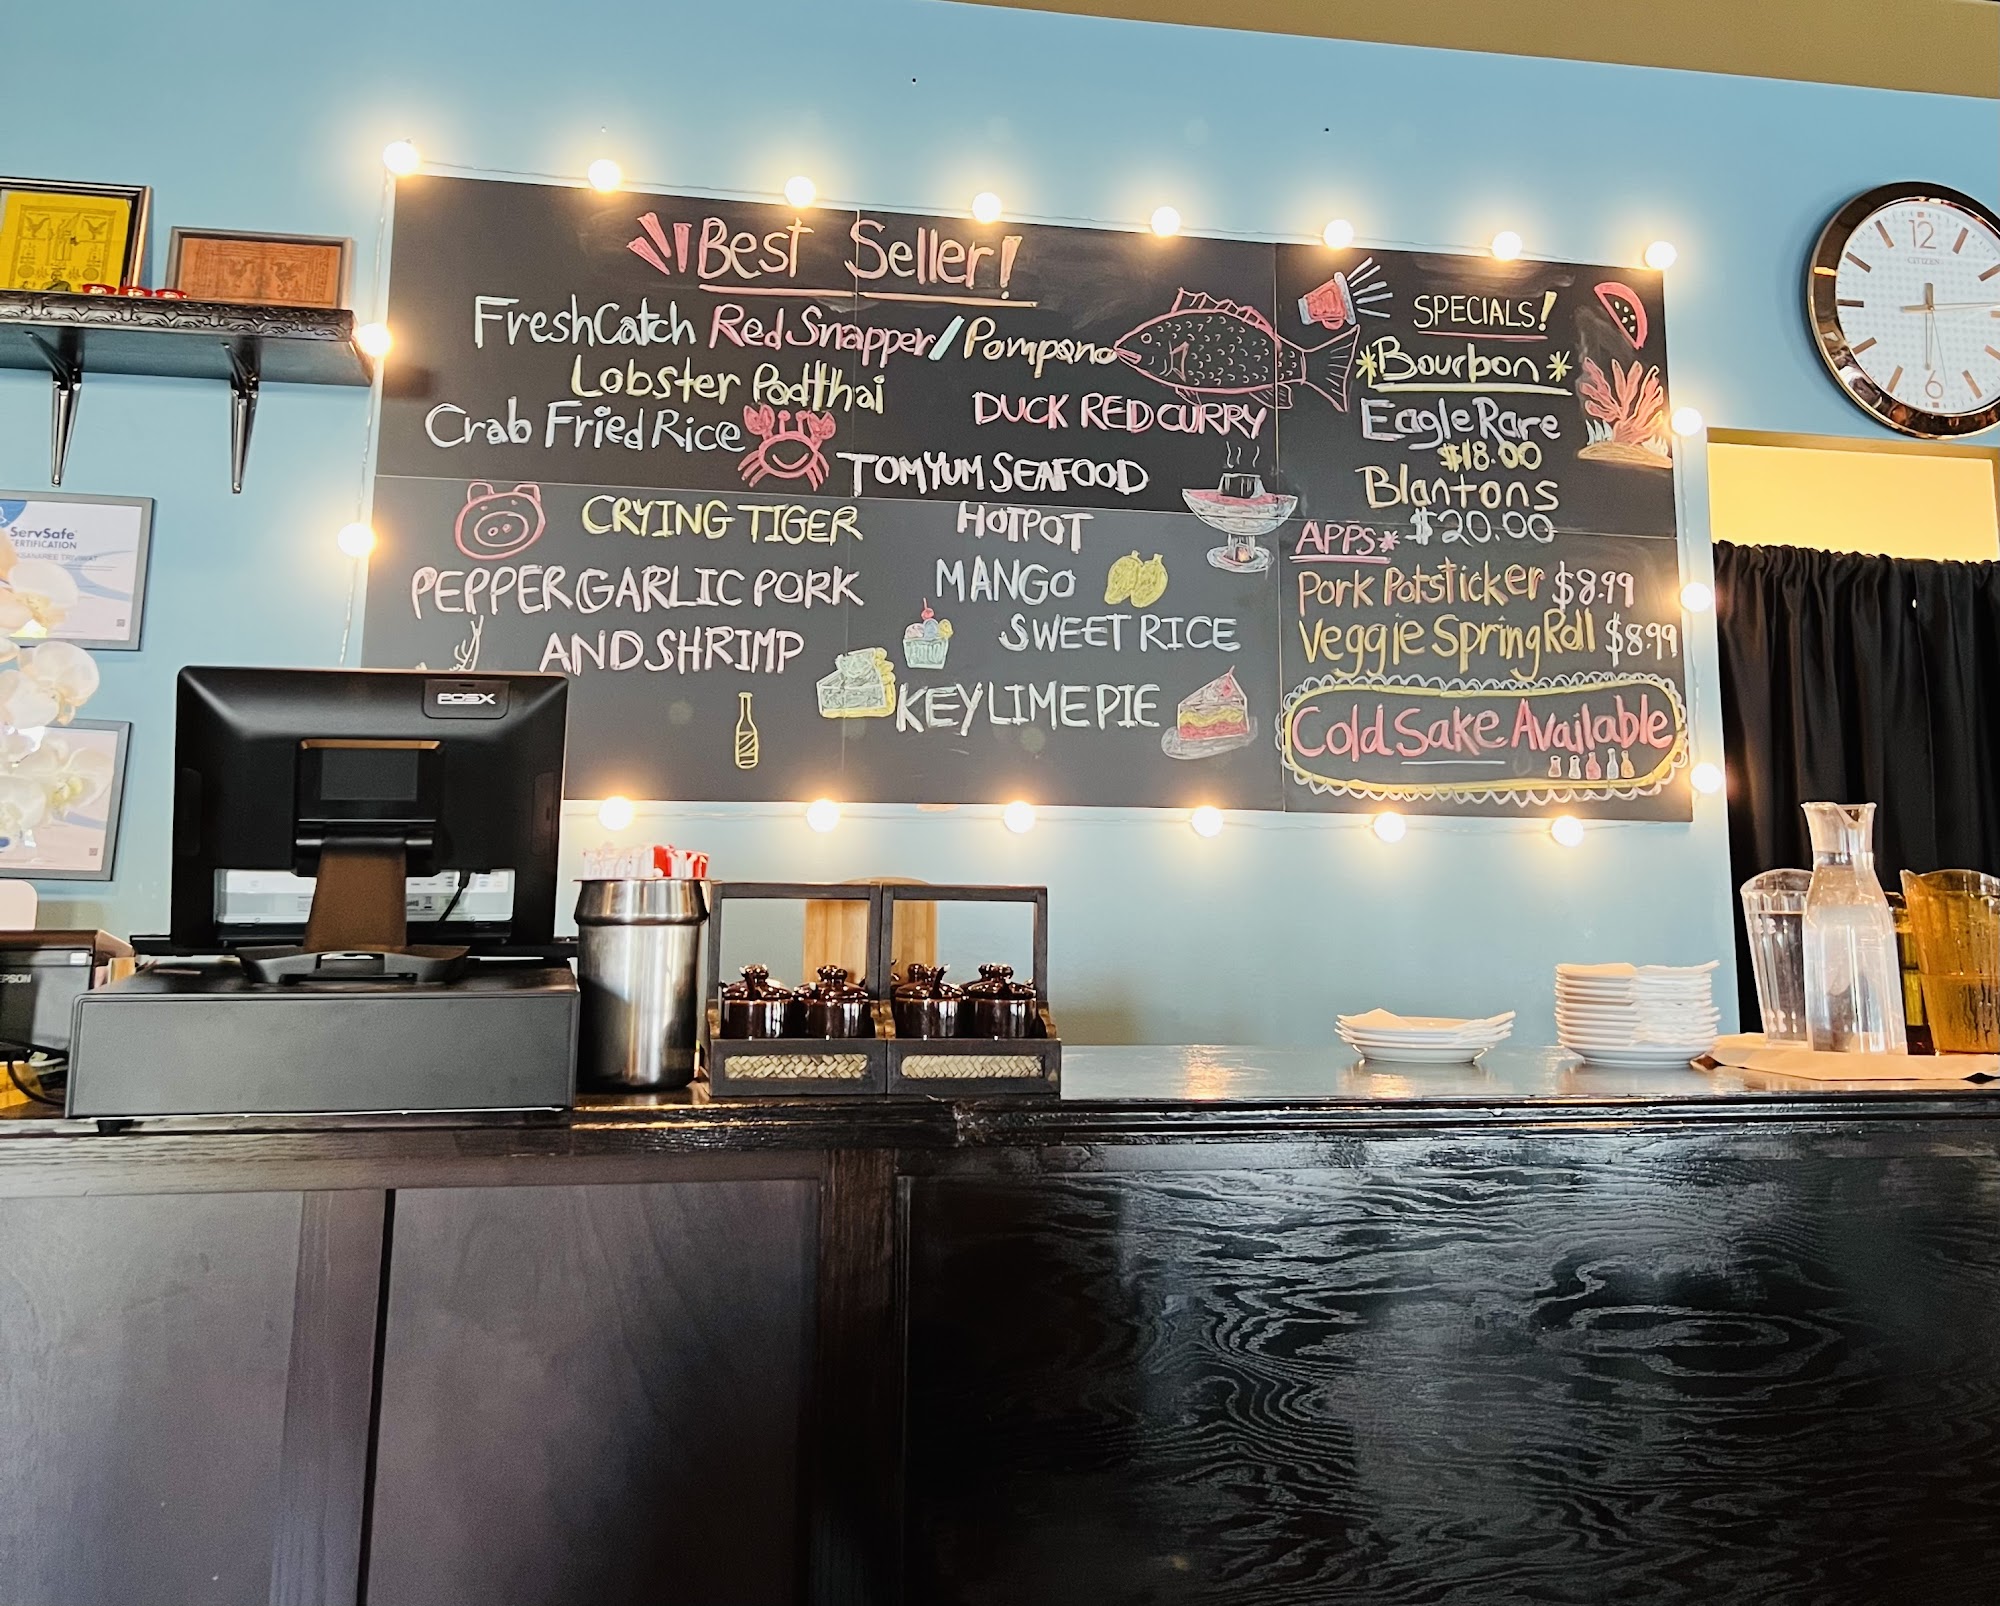 Best Seller!
FreshCatch Red Snapper/Pompano
Lobster Padthai
Crab Fried Rice
DUCK RED CURRY
TOMYUM SEAFOOD
HOTPOT
CRYING TIGER
PEPPER GARLIC PORK
AND SHRIMP
MANGO
SWEET RICE
KEY LIME PIE
SPECIALS!
*Bourbon*
Eagle Rare
$18.00
Blantons
$20.00
APPS*
Pork Potsticker $8.99
Veggie Spring Roll $8.99
Cold Sake Available
ServSafe
CERTIFICATION
POSX
EPSON
12
CITIZEN
6